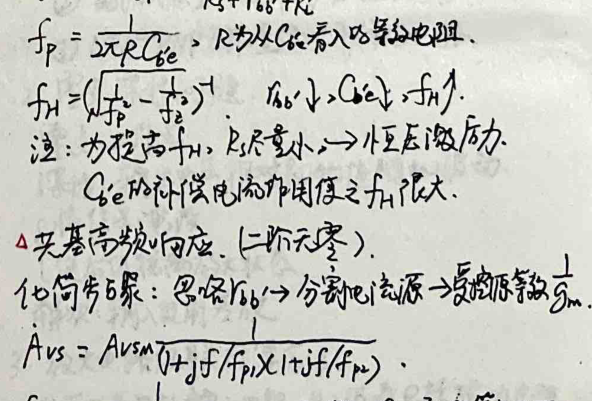 Rs+rbb'+Ri
fp = 1/(2πRCb'e), R为从Cb'e看入的等效电阻.
fH = (√(1/fp² - 1/fz²))⁻¹. rbb'↓, Cb'e↓, fH↑.
注: 为提高fH, Rs尽量小, → 恒压激励.
Cb'e的补偿电流作用使之fH很大.
△共基高频响应. (二阶无零).
化简步骤: 忽略rbb' → 分割电流源 → 受控源等效 1/gm.
Avs = AvsM 1/((1+jf/fp1)(1+jf/fp2)).